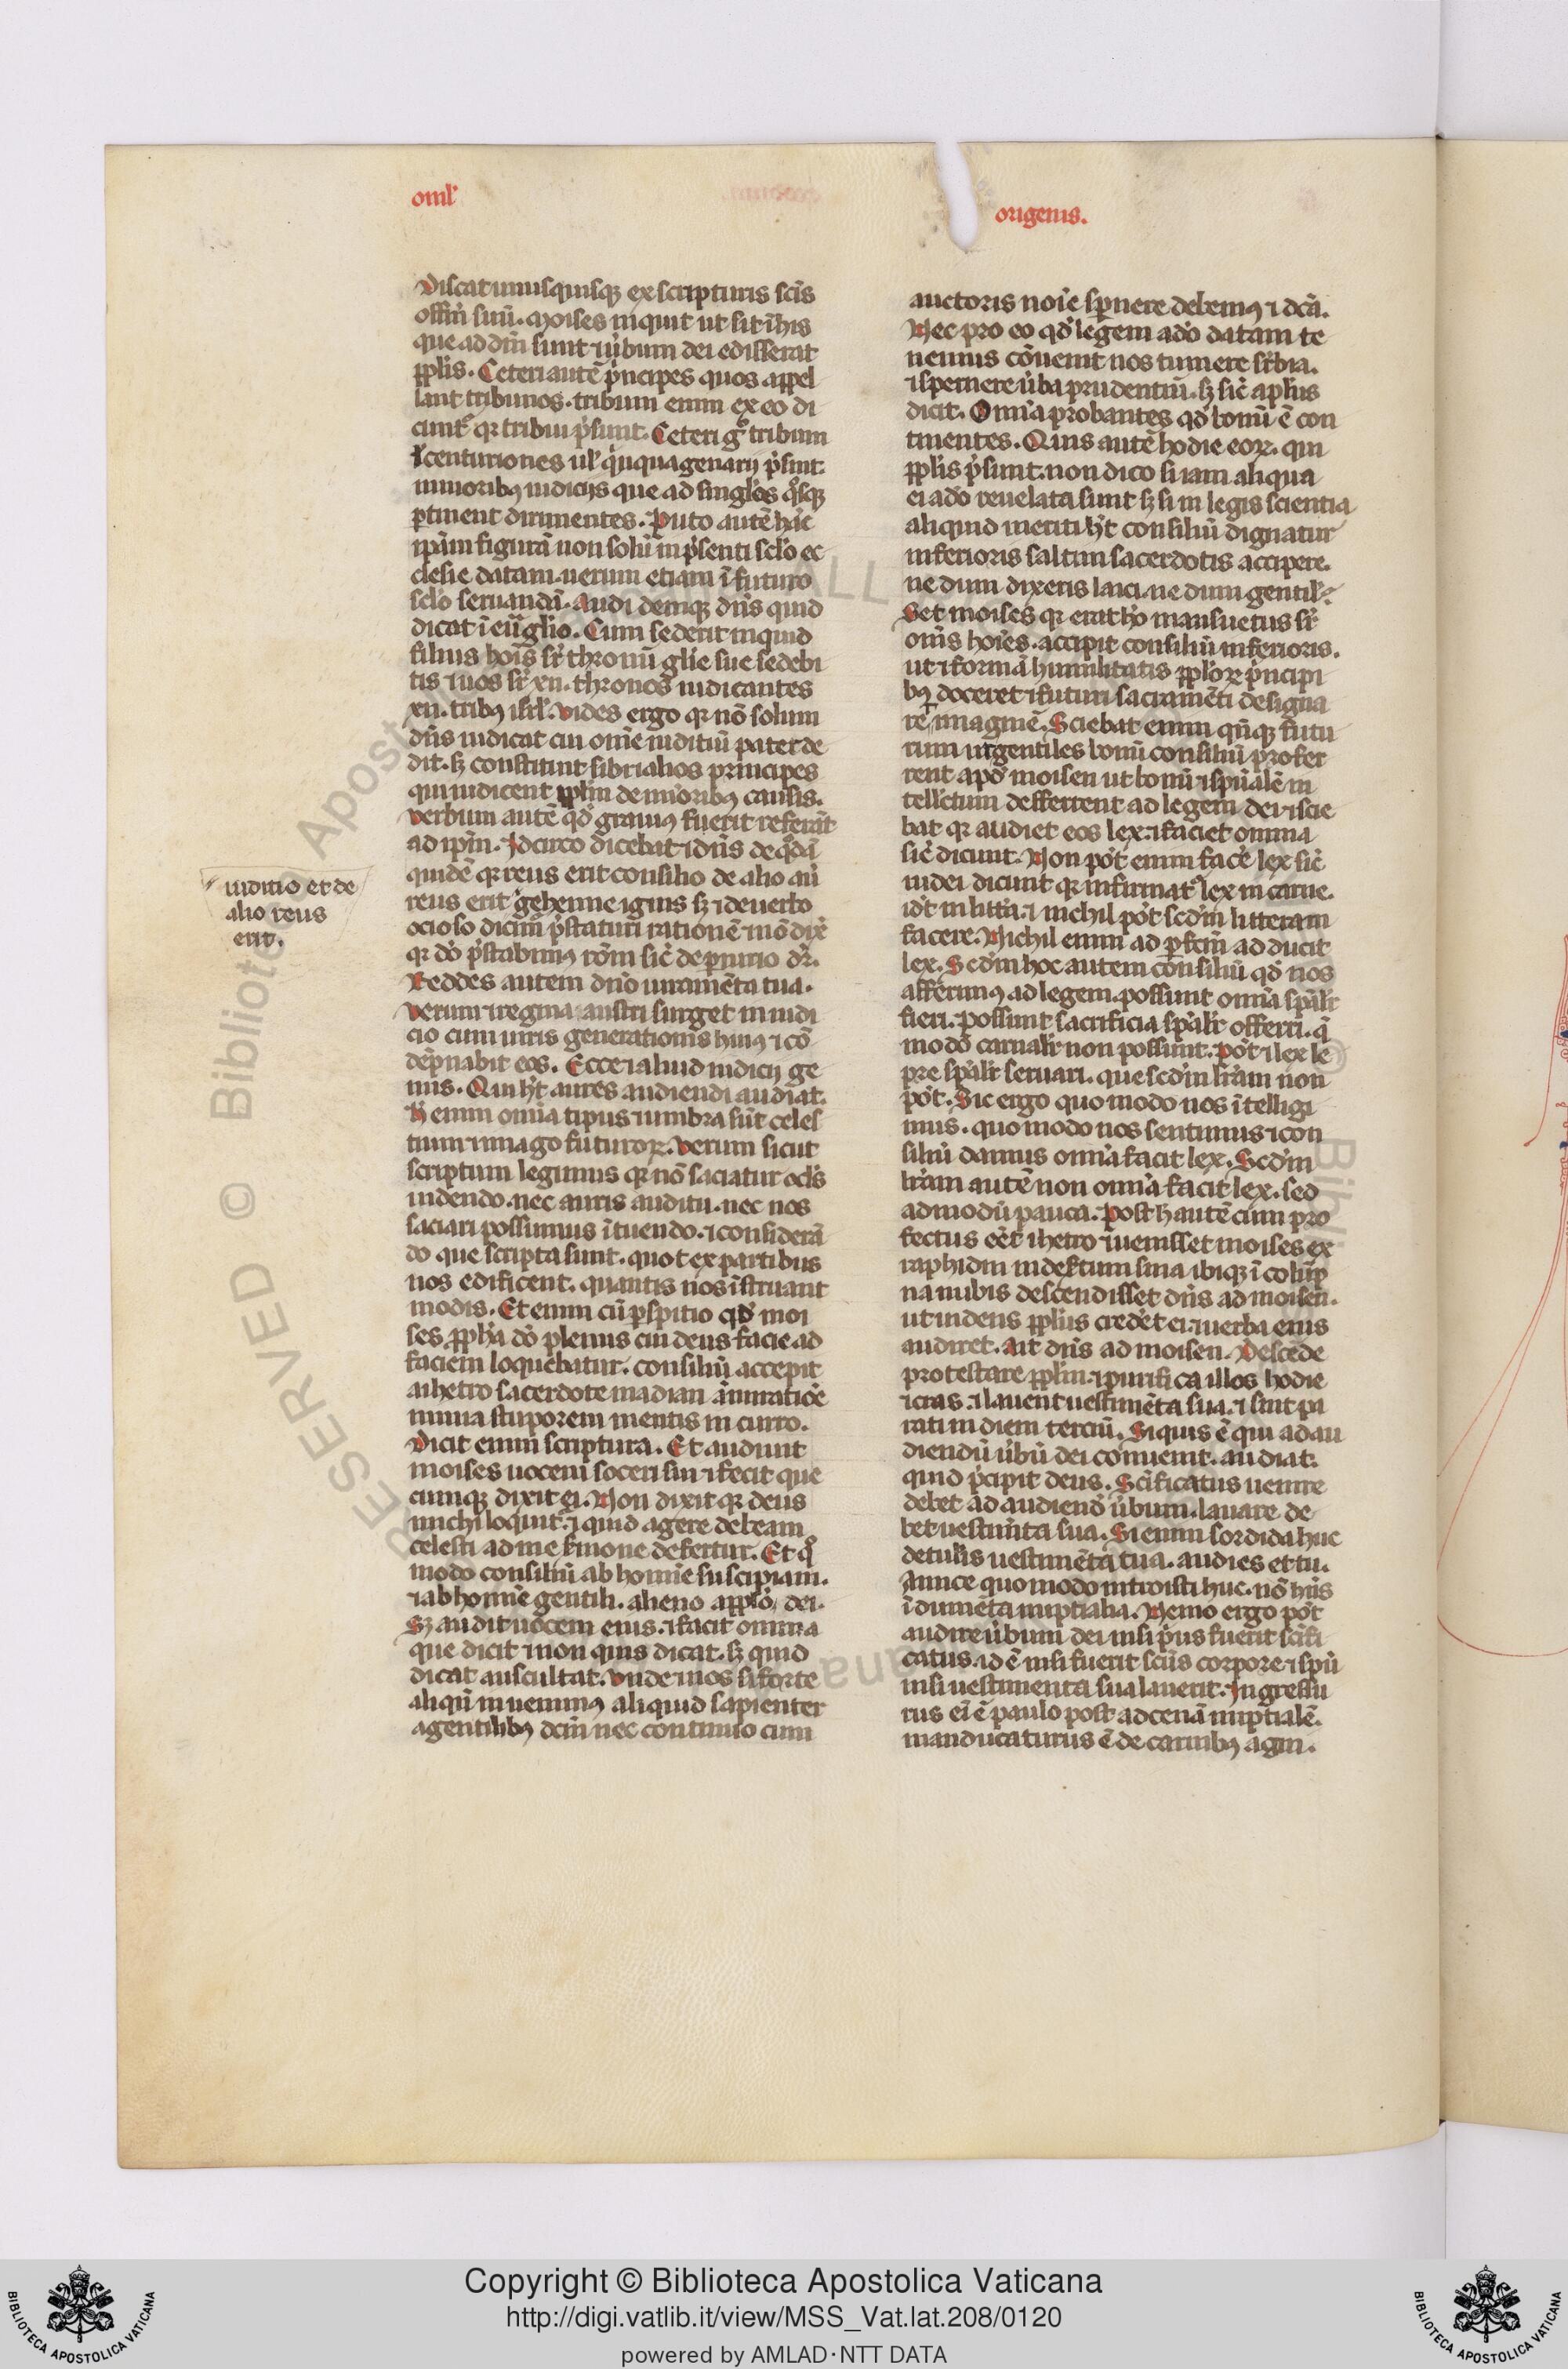 oml'
origenis.
Discat unusquisq; ex scripturis scīs
offm̄ suū. Moises inquit ut sit ī his
que ad dm̄ sunt ⁊ ūbum dei edisserat
pplīs. Ceteri autē p̄ncipes quos appel
lant tribunos. tribuni enim ex eo di
cunt᷑ qr tribui p̄sunt. Ceteri gͦ tribuni
ul' centuriones ul' q̄nquagenarij p̄sint
minoribꝰ iudicijs que ad singl'os qͦsq;
ꝑtinent dirimentes. Puto autē hāc
ip̄am figurā non solū in p̄senti sclō ec
clesie datam. uerum etiam ī futuro
sclō seruandā. Audi deniq; dn̄s quid
dicat ī euglīo. Cum sederit inquid
filius hoīs sr̄ thronū glīe sue sedebi
tis ⁊ uos sr̄ xij. thronos iudicantes
xij. tribꝰ isrl'. Vides ergo qr nō solum
dn̄s iudicat cui om̄e iuditiū pater de
dit. sꝫ constituit sibi ⁊ alios principes
qui iudicent ppl'm de mīoribꝰ causis.
Verbum autē qd̄ grauiꝰ fuerit referāt
ad ip̄m. Idcirco dicebat ⁊ dn̄s de qͦdā
quidē qr reus erit consilio de alio aū
reus erit gehenne ignis sꝫ ⁊ de uerbo
ocioso dicim̄ p̄staturi rationē ⁊ nō dix̄
qr dō p̄stabimꝰ rōm sic̄ de periurio dr̄.
Reddes autem dn̄o iuramēta tua.
Verum ⁊ regina austri surget in iudi
cio cum uiris generationis huiꝰ ⁊ cō
dēpnabit eos. Ecce ⁊ aliud iudicij ge
nus. Qui h̄t aures audiendi audiat.
H̄ enim om̄ia tipus ⁊ umbra sūt celes
tium ⁊ imago futuroꝝ. Verum sicut
scriptum legimus qr nō saciatur ocl's
uidendo. nec auris auditu. nec nos
saciari possumus ītuendo. ⁊ considerā
do que scripta sunt. quot ex partibus
nos edificent. quantis nos īstruant
modis. Et enim cū ꝑspitio qd̄ moi
ses ppħa dō plenus cui deus facie ad
faciem loquebatur. consiliū accepit
a ihetro sacerdote madian āmiratiōe
nimia stuporem mentis in curro.
Dicit enim scriptura. Et audiuit
moises uocem soceri sui ⁊ fecit que
cumq; dixit ei. Non dixit qr deus
michi loquit᷑. ⁊ quid agere debeam
celesti ad me s̄mone defertur. Et qͦ
modo consiliū ab homīe suscipiam.
⁊ ab homīe gentili. alieno a pplō dei.
Sꝫ audit uocem eius. ⁊ facit omnia
que dicit ⁊ non quis dicat. sꝫ quid
dicat auscultat. Vnde ⁊ nos si forte
aliqn̄ inuenimꝰ aliquid sapienter
a gentilibꝰ dcm̄ nec continuo cum
iuditio et de
alio reus
erit.
auctoris noīe spernere debemꝰ ⁊ dcā.
Nec pro eo qd̄ legem a dō datam te
nemus cōuenit nos tumere sr̄bia.
⁊ spernere ūba prudentiū. sꝫ sic̄ apl'us
dicit. Om̄ia probantes qd̄ bonū ē con
tinentes. Quis autē hodie eoꝝ. qui
ppl'is p̄sunt. non dico si iam aliqua
ei a dō reuelata sunt sꝫ si in legis scientia
aliquid meriti h̄t consiliū dignatur
inferioris saltim sacerdotis accipere.
ne dum dixeris laici. ne dum gentil'?
Set moises qr erat hō mansuetus sr̄
om̄s hoīes. accipit consiliū inferioris.
ut ⁊ formā humilitatis ppl'oꝝ p̄ncipi
bꝰ doceret ⁊ futuri sacramēti designa
ret imaginē. Sciebat enim qn̄q; futu
rum ut gentiles bonū consiliū profer
rent apd̄ moisen ut bonū ⁊ spūalē in
tell'ctum defferrent ad legem dei ⁊ scie
bat qr audiet eos lex. ⁊ faciet omnia
sic̄ dicunt. Non pōt enim facē lex sic̄
iudei dicunt qr infirmat᷑ lex in carne.
id't in litt'a. ⁊ nichil pōt scd'm litteram
facere. Nichil enim ad ꝑfcm̄ adducit
lex. Scd'm hoc autem consiliū qd̄ nos
afferimꝰ ad legem. possunt om̄ia spālr̄
fieri. possunt sacrificia spālr̄ offerri. q̄
modo carnalr̄ non possunt. Pōt ⁊ lex le
pre spālr̄ seruari. que scd'm lr̄am non
pōt. Sic ergo quo modo nos ītelligi
mus. quo modo nos sentimus ⁊ con
siliū damus om̄ia facit lex. Scd'm
lr̄am autē non om̄ia facit lex. sed
admodū pauca. Post h̄ autē cum pro
fectus eēt ihetro ⁊ uenisset moises ex
raphidin in des̄tum sina ibiq; ī colūp
na nubis descendisset dn̄s ad moisen.
ut uidens ppl'us credēt ei. ⁊ uerba eius
audiret. Ait dn̄s ad moisen. Descēde
protestare ppl'm. ⁊ purifica illos hodie
⁊ cras. ⁊ lauent uestimēta sua. ⁊ sint pa
rati in diem terciū. Si quis ē qui ad au
diendū ūbū dei conuenit. audiat.
quid p̄cipit deus. Scīficatus uenire
debet ad audiend' ūbum. lauare de
bet uestim̄ta sua. Si enim sordida huc
detulis uestimēta tua. audies et tu.
Amice quomodo introisti huc. nō hn̄s
īdumēta nuptialia. Nemo ergo pōt
audire ūbum dei nisi p̄us fuerit scīfi
catus. id ē nisi fuerit scūs corpore ⁊ spū
nisi uestimenta sua lauerit. Ingressu
rus eī ē paulo post ad cenā nuptialē.
manducaturus ē de carnibꝰ agni.
Copyright © Biblioteca Apostolica Vaticana
http://digi.vatlib.it/view/MSS_Vat.lat.208/0120
powered by AMLAD·NTT DATA